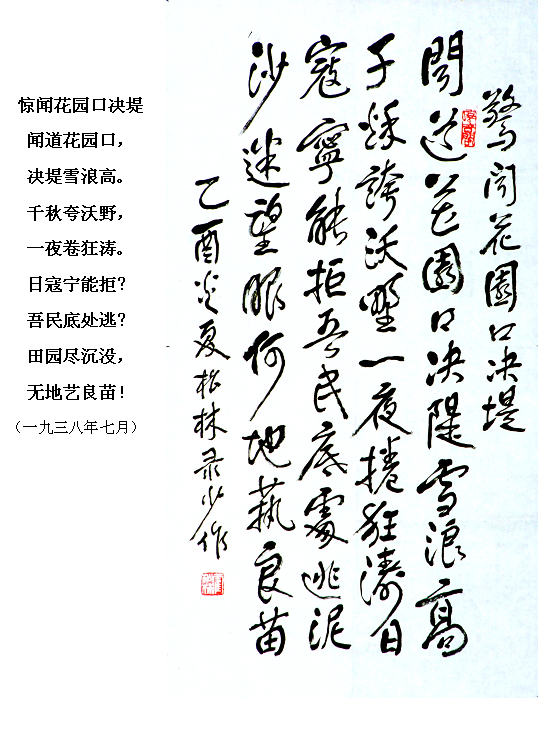 惊闻花园口决堤
闻道花园口，
决堤雪浪高。
千秋夸沃野，
一夜卷狂涛。
日寇宁能拒？
吾民底处逃？
田园尽沉没，
无地艺良苗！
（一九三八年七月）
驚闻花園口决堤
聞道花園口决隄雪浪高
千秋誇沃野一夜捲狂濤日
寇寧能拒吾民底處逃泥
沙迷望眼何地蓺良苗
乙酉炎夏松林录少作